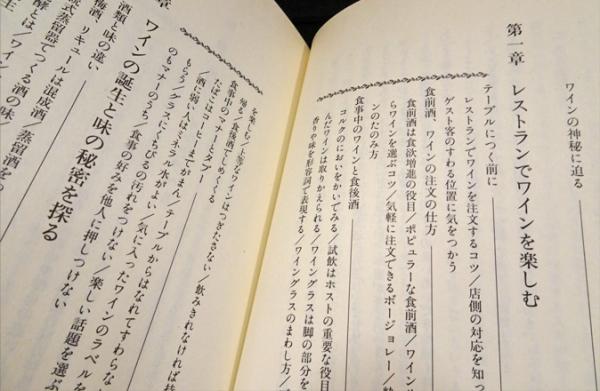 ワインの神秘に迫る
第一章 レストランでワインを楽しむ
テーブルにつく前に
レストランでワインを注文するコツ／店側の対応を知
ゲスト客のすわる位置に気をつかう
食前酒、ワインの注文の仕方
食前酒は食欲増進の役目／ポピュラーな食前酒／ワイン
らワインを選ぶコツ／気軽に注文できるボージョレー／
ンのたのみ方
食事中のワインと食後酒
コルクのにおいをかいでみる／試飲はホストの重要な役目
んだワインは取りかえられる／ワイングラスは脚の部分を
香りや味を形容詞で表現する／ワイングラスのまわし方／
を楽しむ／上等なワインはつぎたさない／飲みきれなければ持
帰る／食後酒でしめくくる
食事中のマナーとタブー
たばこはコーヒーまでがまん／テーブルからはなれてすわらな
／酒に弱い人はミネラル水がよい／気に入ったワインのラベルを
もらう／グラスにくちびるの汚れをつけない／楽しい話題を選ぶ
のもマナーのうち／食事の好みを他人に押しつけない
章 ワインの誕生と味の秘密を探る
酒類と味の違い
梅酒、リキュールは混成酒／蒸留酒を
式蒸留器でつくる酒の味／
酵とは／ワイ